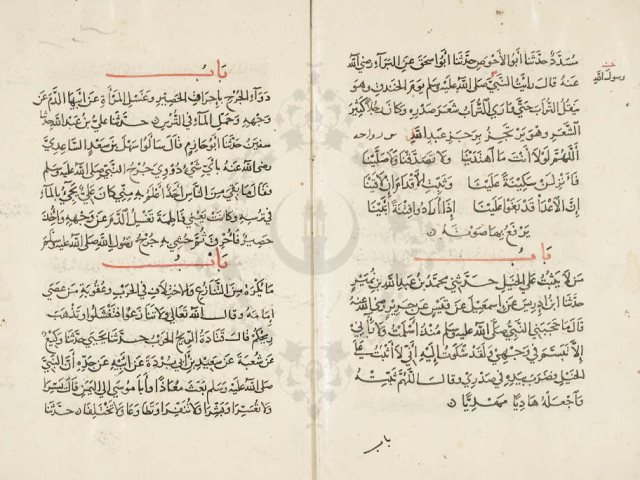 مسدد حدثنا أبو الأحوص حدثنا أبو اسحق عن البراء رضي الله
عنه قال رأيت النبي صلى الله عليه وسلم يوم الخندق وهو
ينقل التراب حتى وارى التراب شعر صدره وكان رجلا كثير
الشعر وهو يرتجز برجز عبد الله بن رواحه
رسول الله
اللهم لولا أنت ما اهتدينا ولا تصدقنا ولا صلينا
فأنزلن سكينة علينا وثبت الأقدام إن لاقينا
إن الأعداء قد بغوا علينا إذا أرادوا فتنة أبينا
يرفع بها صوته
باب
من لا يثبت على الخيل حدثني محمد بن عبد الله بن نمير
حدثنا ابن إدريس عن إسمعيل عن قيس عن جرير رضي الله عنه
قال ما حجبني النبي صلى الله عليه وسلم منذ أسلمت ولا رآني
إلا تبسم في وجهي ولقد شكوت إليه إني لا أثبت على
الخيل فضرب بيده في صدري وقال اللهم ثبته
واجعله هاديا مهديا
باب
باب
دواء الجرح بإحراق الحصير وغسل المرأة عن أبيها الدم عن
وجهه وحمل الماء في الترس حدثنا علي بن عبد الله حدثنا
سفين حدثنا أبو حازم قال سألوا سهل بن سعد الساعدي
رضي الله عنه بأي شيء دووي جرح النبي صلى الله عليه وسلم
فقال ما بقي من الناس أحد أعلم به مني كان علي يجيء بالماء
في ترسه وكانت يعني فاطمة تغسل الدم عن وجهه وأخذ
حصير فأحرق ثم حشي به جرح رسول الله صلى الله عليه وسلم
باب
ما يكره من التنازع والاختلاف في الحرب وعقوبة من عصى
إمامه وقال الله تعالى ولا تنازعوا فتفشلوا وتذهب
ريحكم قال قتادة الريح الحرب حدثنا يحيى حدثنا وكيع
عن شعبة عن سعيد بن أبي بردة عن أبيه عن جده أن النبي
صلى الله عليه وسلم بعث معاذا وأبا موسى إلى اليمن قال يسرا
ولا تعسرا وبشرا ولا تنفرا وتطاوعا ولا تختلفا حدثنا